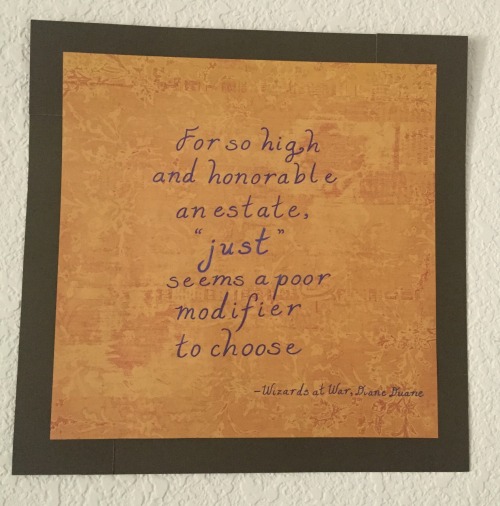 For so high
and honorable
an estate,
"just"
seems a poor
modifier
to choose
-Wizards at War, Diane Duane